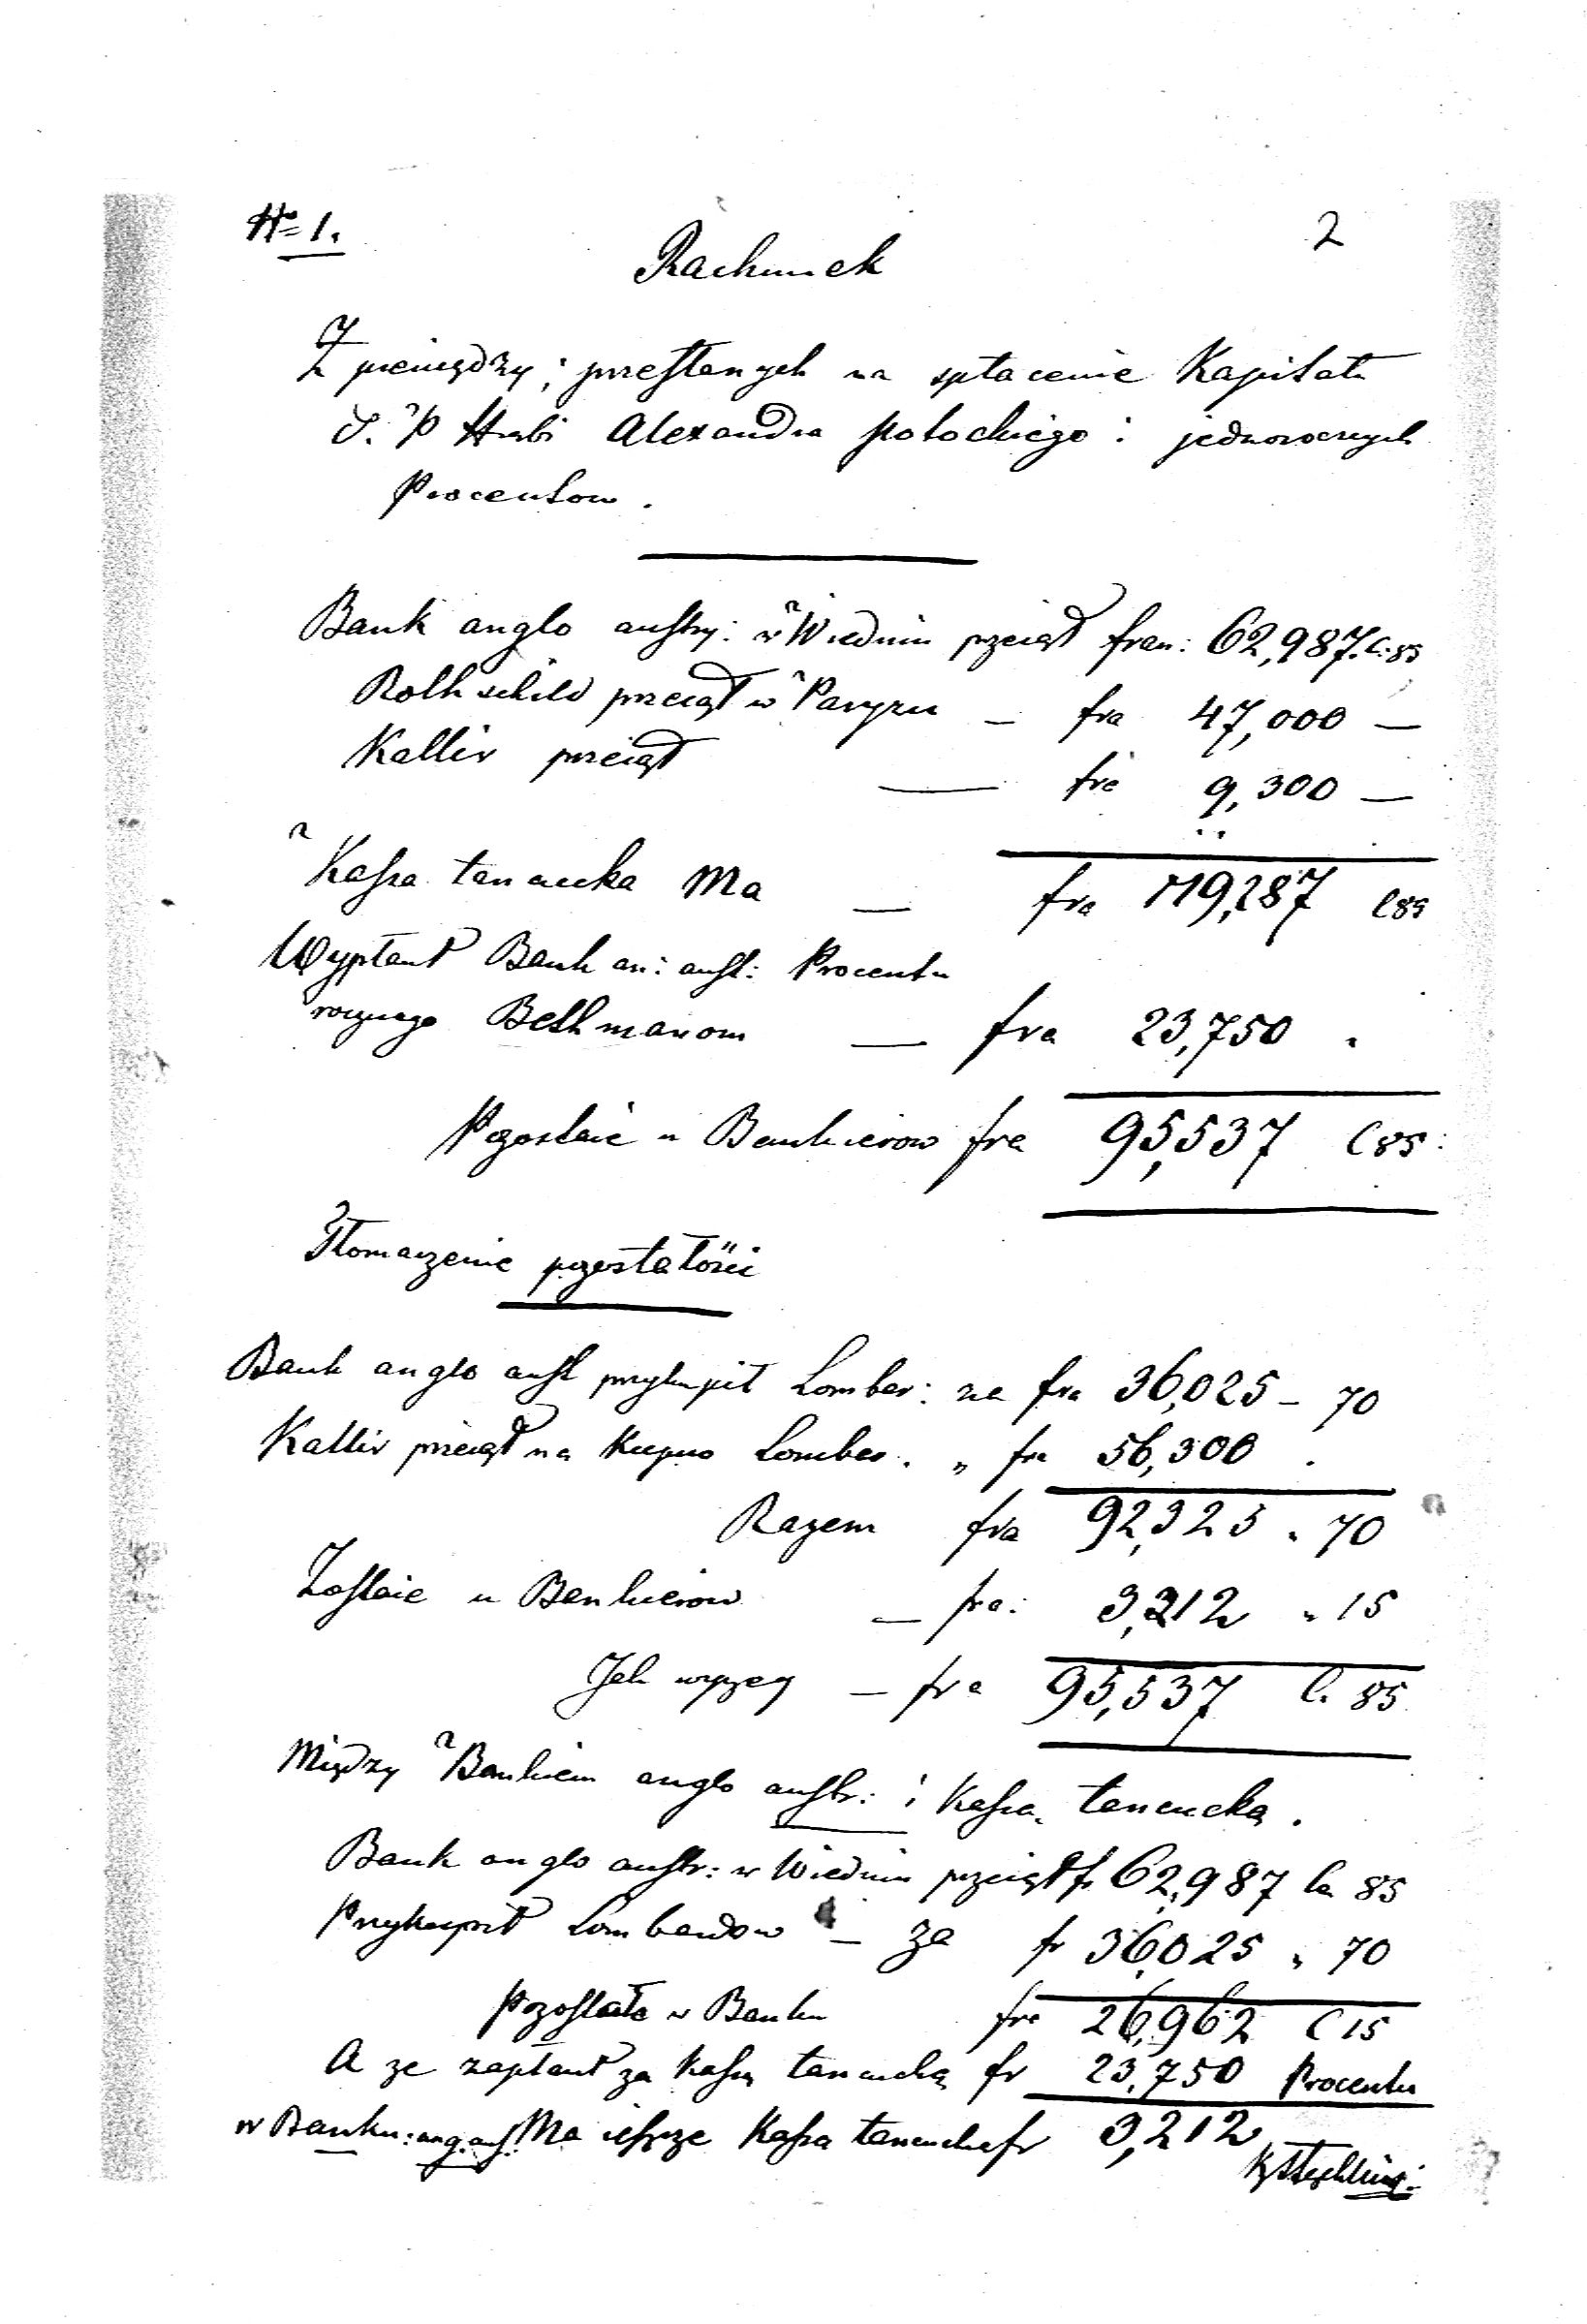 No 1.
2
Rachunek
Z pieniędzy, przesłanych na spłacenie Kapitału
Ś. P Hrabi Alexandra Potockiego i jednorocznych
Procentow.
Bank anglo austry: w Wiedniu przeciął fran: 62,987. C: 85
Rothschild przeciął w Paryzu — fra 47,000 —
Kallir przeciął — fra 9,300 —
Kassa łancucka Ma — fra 119,287 C 85
Wypłacił Bank an: aust: Procentu
rocznego Bethmanom — fra 23,750 "
Pozostaie u Bankierow fra 95,537 C 85:
Tłomaczenie pozostałości
Bank anglo aust przykupił Lombar: za fra 36,025 – 70
Kallir przeciął na kupno Lombar. " fra 56,300 .
Razem fra 92,325 " 70
Zostaie u Bankierow — fra: 3,212 " 15
Jak wyzey — fra 95,537 C. 85
Między Bankiem anglo austr: i Kassą łancucką.
Bank anglo austr: w Wiedniu przeciął fr 62,987 Ca 85
Przykupił Lombardow — za fr 36,025 " 70
Pozostało w Banku fra 26,962 C 15
A ze zapłacił za Kassę łancucką fr 23,750 Procentu
w Banku: ang. aust: Ma ieszcze Kassa łancucka fr 3,212